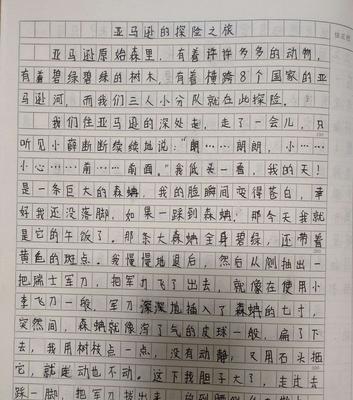 亚马逊的探险之旅
亚马逊原始森里，有着许许多多的动物，
有着碧绿碧绿的树木，有着横跨8个国家的亚
马逊河，而我们三人小分队就在此探险。
我们往亚马逊的深处走，走了一会儿，只
听见小薛断断续续地说："朗……朗朗，小……
小心……前……前面。"我低头一看，我的天！
是一条巨大的森蚺，我的脸瞬间变得苍白，幸
好我还没落脚，如果一踩到森蚺，那今天我就
是它的午饭了。那条大森蚺全身碧绿，还带着
黄色的斑点。我慢慢地退后，然后从侧抽出一
把瑞士军刀，把军刀飞了出去，就像在使用小
李飞刀一般，军刀深深地插入了森蚺的七寸，
突然间，森蚺就像泻了气的皮球一般，扁了下
去，我用树枝点一点，没有动静，又用石头
它，就也不动。这下我胆子大了，走过去
踩一脚，把军刀